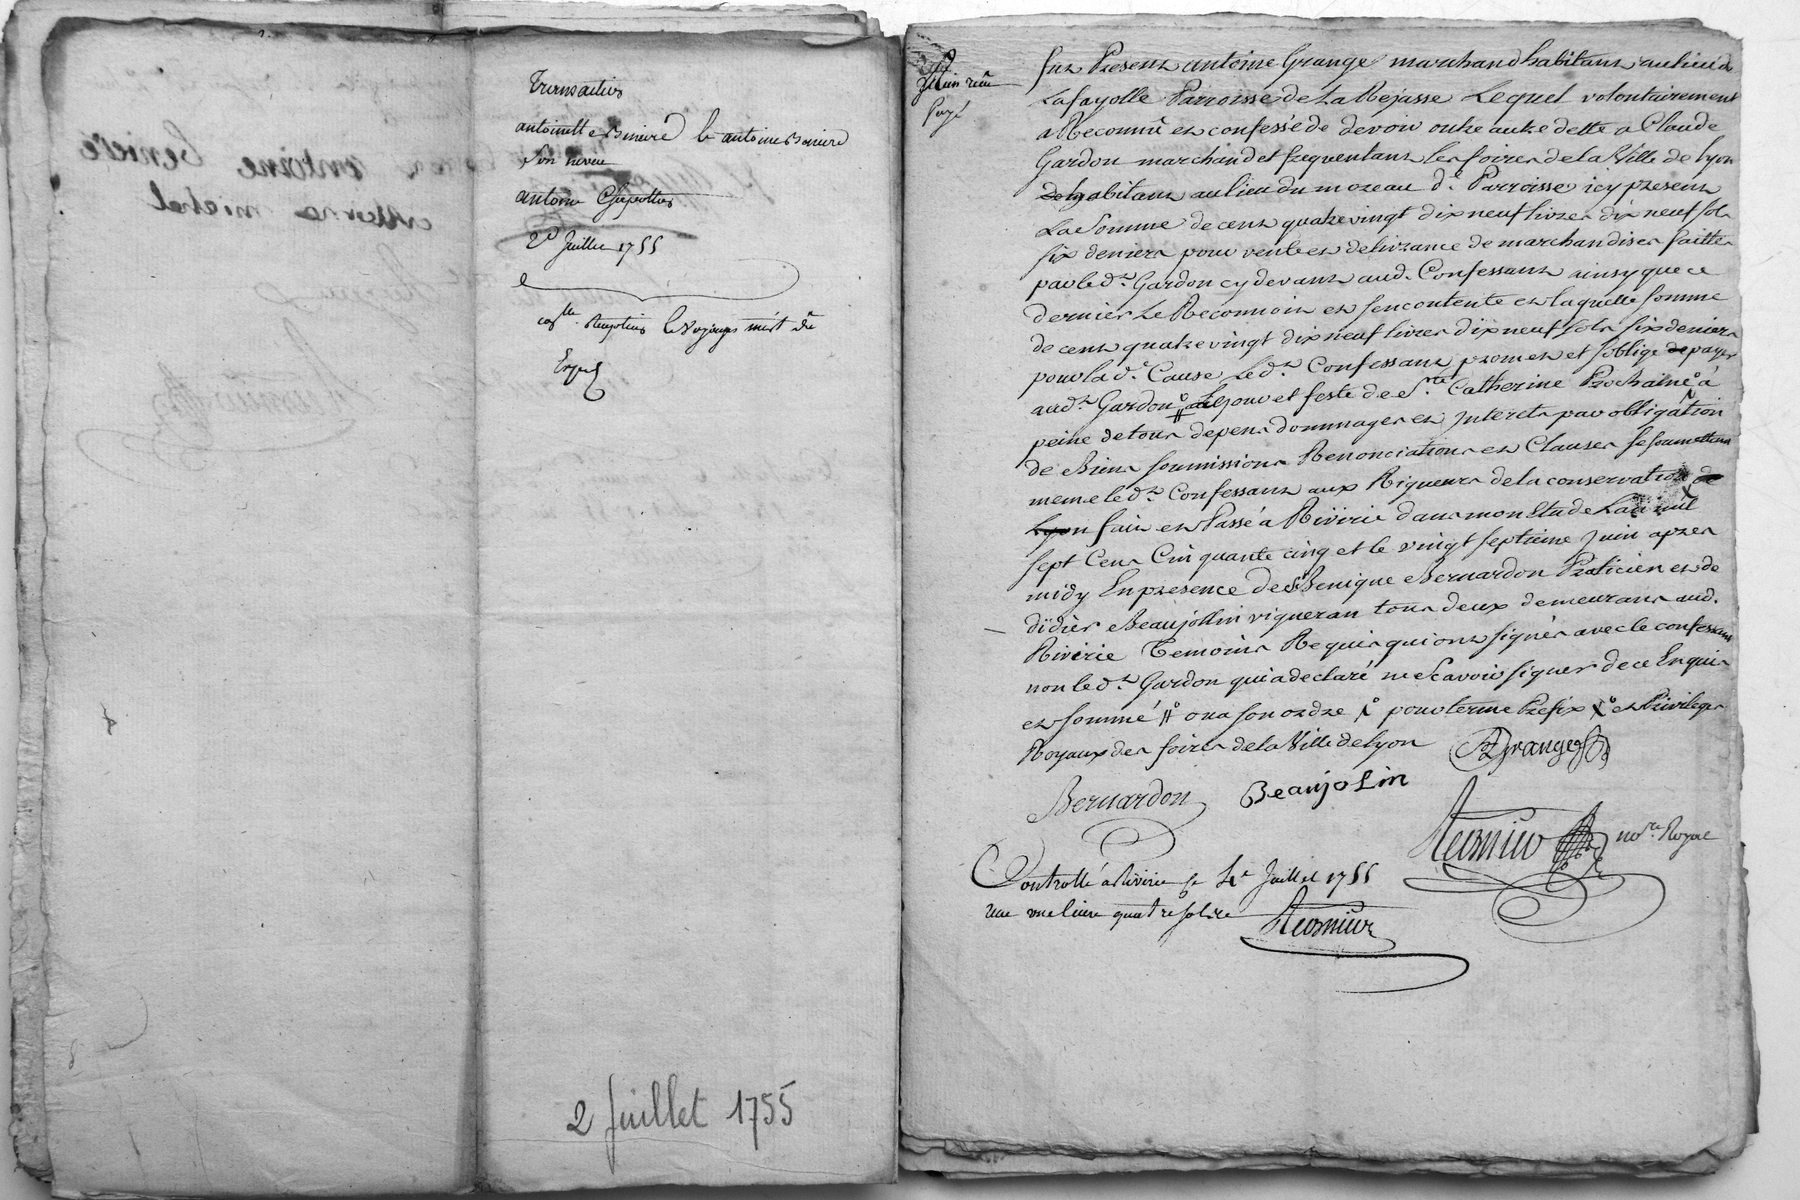 Transaction
antoinette Benière & antoine Beniere
son neveu
antoine Chipottier
2e Juillet 1755
2 Juillet 1755
payé
fut Present antoine Grange marchand habitant au lieu de
Lafayolle Parroisse de La Rejasse Lequel volontairement
a Reconnû et confessé de devoir outre autre dette a Claude
Gardon marchand et frequentant les foires de la Ville de lyon
habitant au lieu du mozeau d.e Parroisse icy present
La Somme de cent quatre vingt dix neuf livres dix neuf sols
six deniers pour vente et delivrance de marchandises faittes
par le d.t Gardon cy devant aud. Confessant ainsy que ce
dernier Le Reconnoit et s'en contente et laquelle somme
de cent quatre vingt dix neuf livres dix neuf sols six deniers
pour la d.e Cause Le d.t Confessant promet et s'oblige de payer
aud.t Gardon au jour et feste de S.te Catherine Prochaine à
peine de tous depens dommages et Interets par obligation
de Biens soumissions Renonciations et Clauses se soumettant
meme le d.t Confessant aux Rigueurs de la conservation de
Lyon fait et Passé a Riverie dans mon Etude L'an mil
sept Cent Cinquante cinq et le vingt septieme Juin apres
midy En presence de S.r Benigne Bernardon Praticien et de
didier Beaujollin vigneron tous deux demeurans aud.
Riverie Temoins Requis qui ont signés avec le confessant
non le d.t Gardon qui a declaré ne scavoir signer de ce Enquis
et sommé # ou a son ordre pour terme Prefix et Privileges
Royaux des foires de la Ville de lyon AGrange
Bernardon Beaujolin
no.re Royal
Controllé à Riverie le 4e Juillet 1755
reçu une livre quatre sols